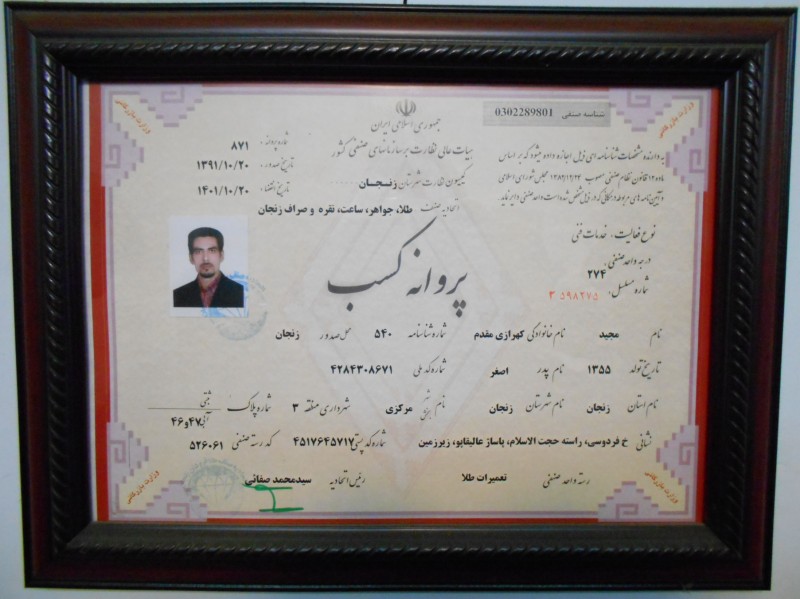 شناسه صنفی 0302289801
جمهوری اسلامی ایران
هیات عالی نظارت بر سازمانهای صنفی کشور
کمیسیون نظارت شهرستان زنجان
اتحادیه صنف طلا، جواهر، ساعت، نقره و صراف زنجان
شماره پروانه: ۸۷۱
تاریخ صدور: ۱۳۹۱/۱۰/۲۰
تاریخ انقضاء: ۱۴۰۱/۱۰/۲۰
به دارنده مشخصات شناسنامه ای ذیل اجازه داده میشود که بر اساس
ماده ۱۲ قانون نظام صنفی مصوب ۱۳۸۲/۱۲/۲۴ مجلس شورای اسلامی
و آیین نامه های مربوطه در مکانی که در ذیل مشخص شده است واحد صنفی دایر نماید.
نوع فعالیت: خدمات فنی
درجه واحد صنفی:
شماره مسلسل: ۲۷۴
۵۹۸۲۷۵ ۳
پروانه کسب
نام مجید نام خانوادگی کهرازی مقدم شماره شناسنامه ۵۴۰ محل صدور زنجان
تاریخ تولد ۱۳۵۵ نام پدر اصغر شماره کد ملی ۴۲۸۴۳۰۸۶۷۱
نام استان زنجان نام شهرستان زنجان نام شهر بخش مرکزی شهرداری منطقه ۳ شماره پلاک ثبتی
آبی ۴۷و۴۶
نشانی خ فردوسی، راسته حجت الاسلام، پاساژ عالیقاپو، زیرزمین شماره کد پستی ۴۵۱۷۶۴۵۷۱۷ کد رسته صنفی ۵۲۶۰۶۱
رسته واحد صنفی تعمیرات طلا رئیس اتحادیه سیدمحمد صفائی
وزارت بازرگانی
وزارت بازرگانی
وزارت بازرگانی
وزارت بازرگانی